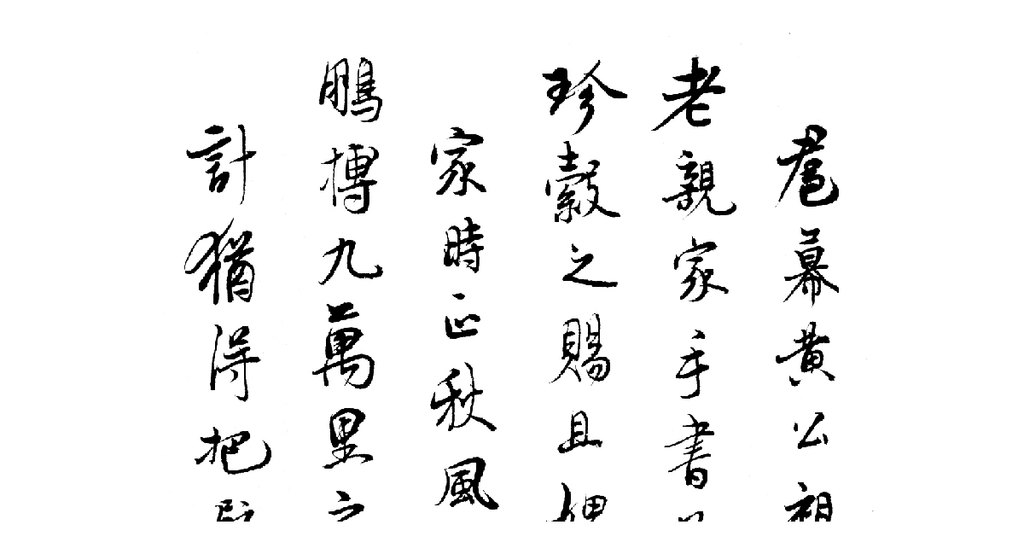 鳸幕黃公
老親家手書
珍縠之賜且
家時正秋風
鵬摶九萬里之
計猶得把